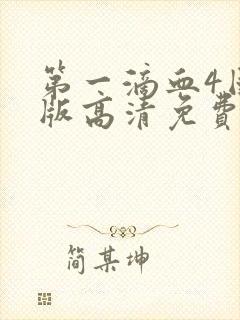 第一滴血4国
版高清免费
简某坤